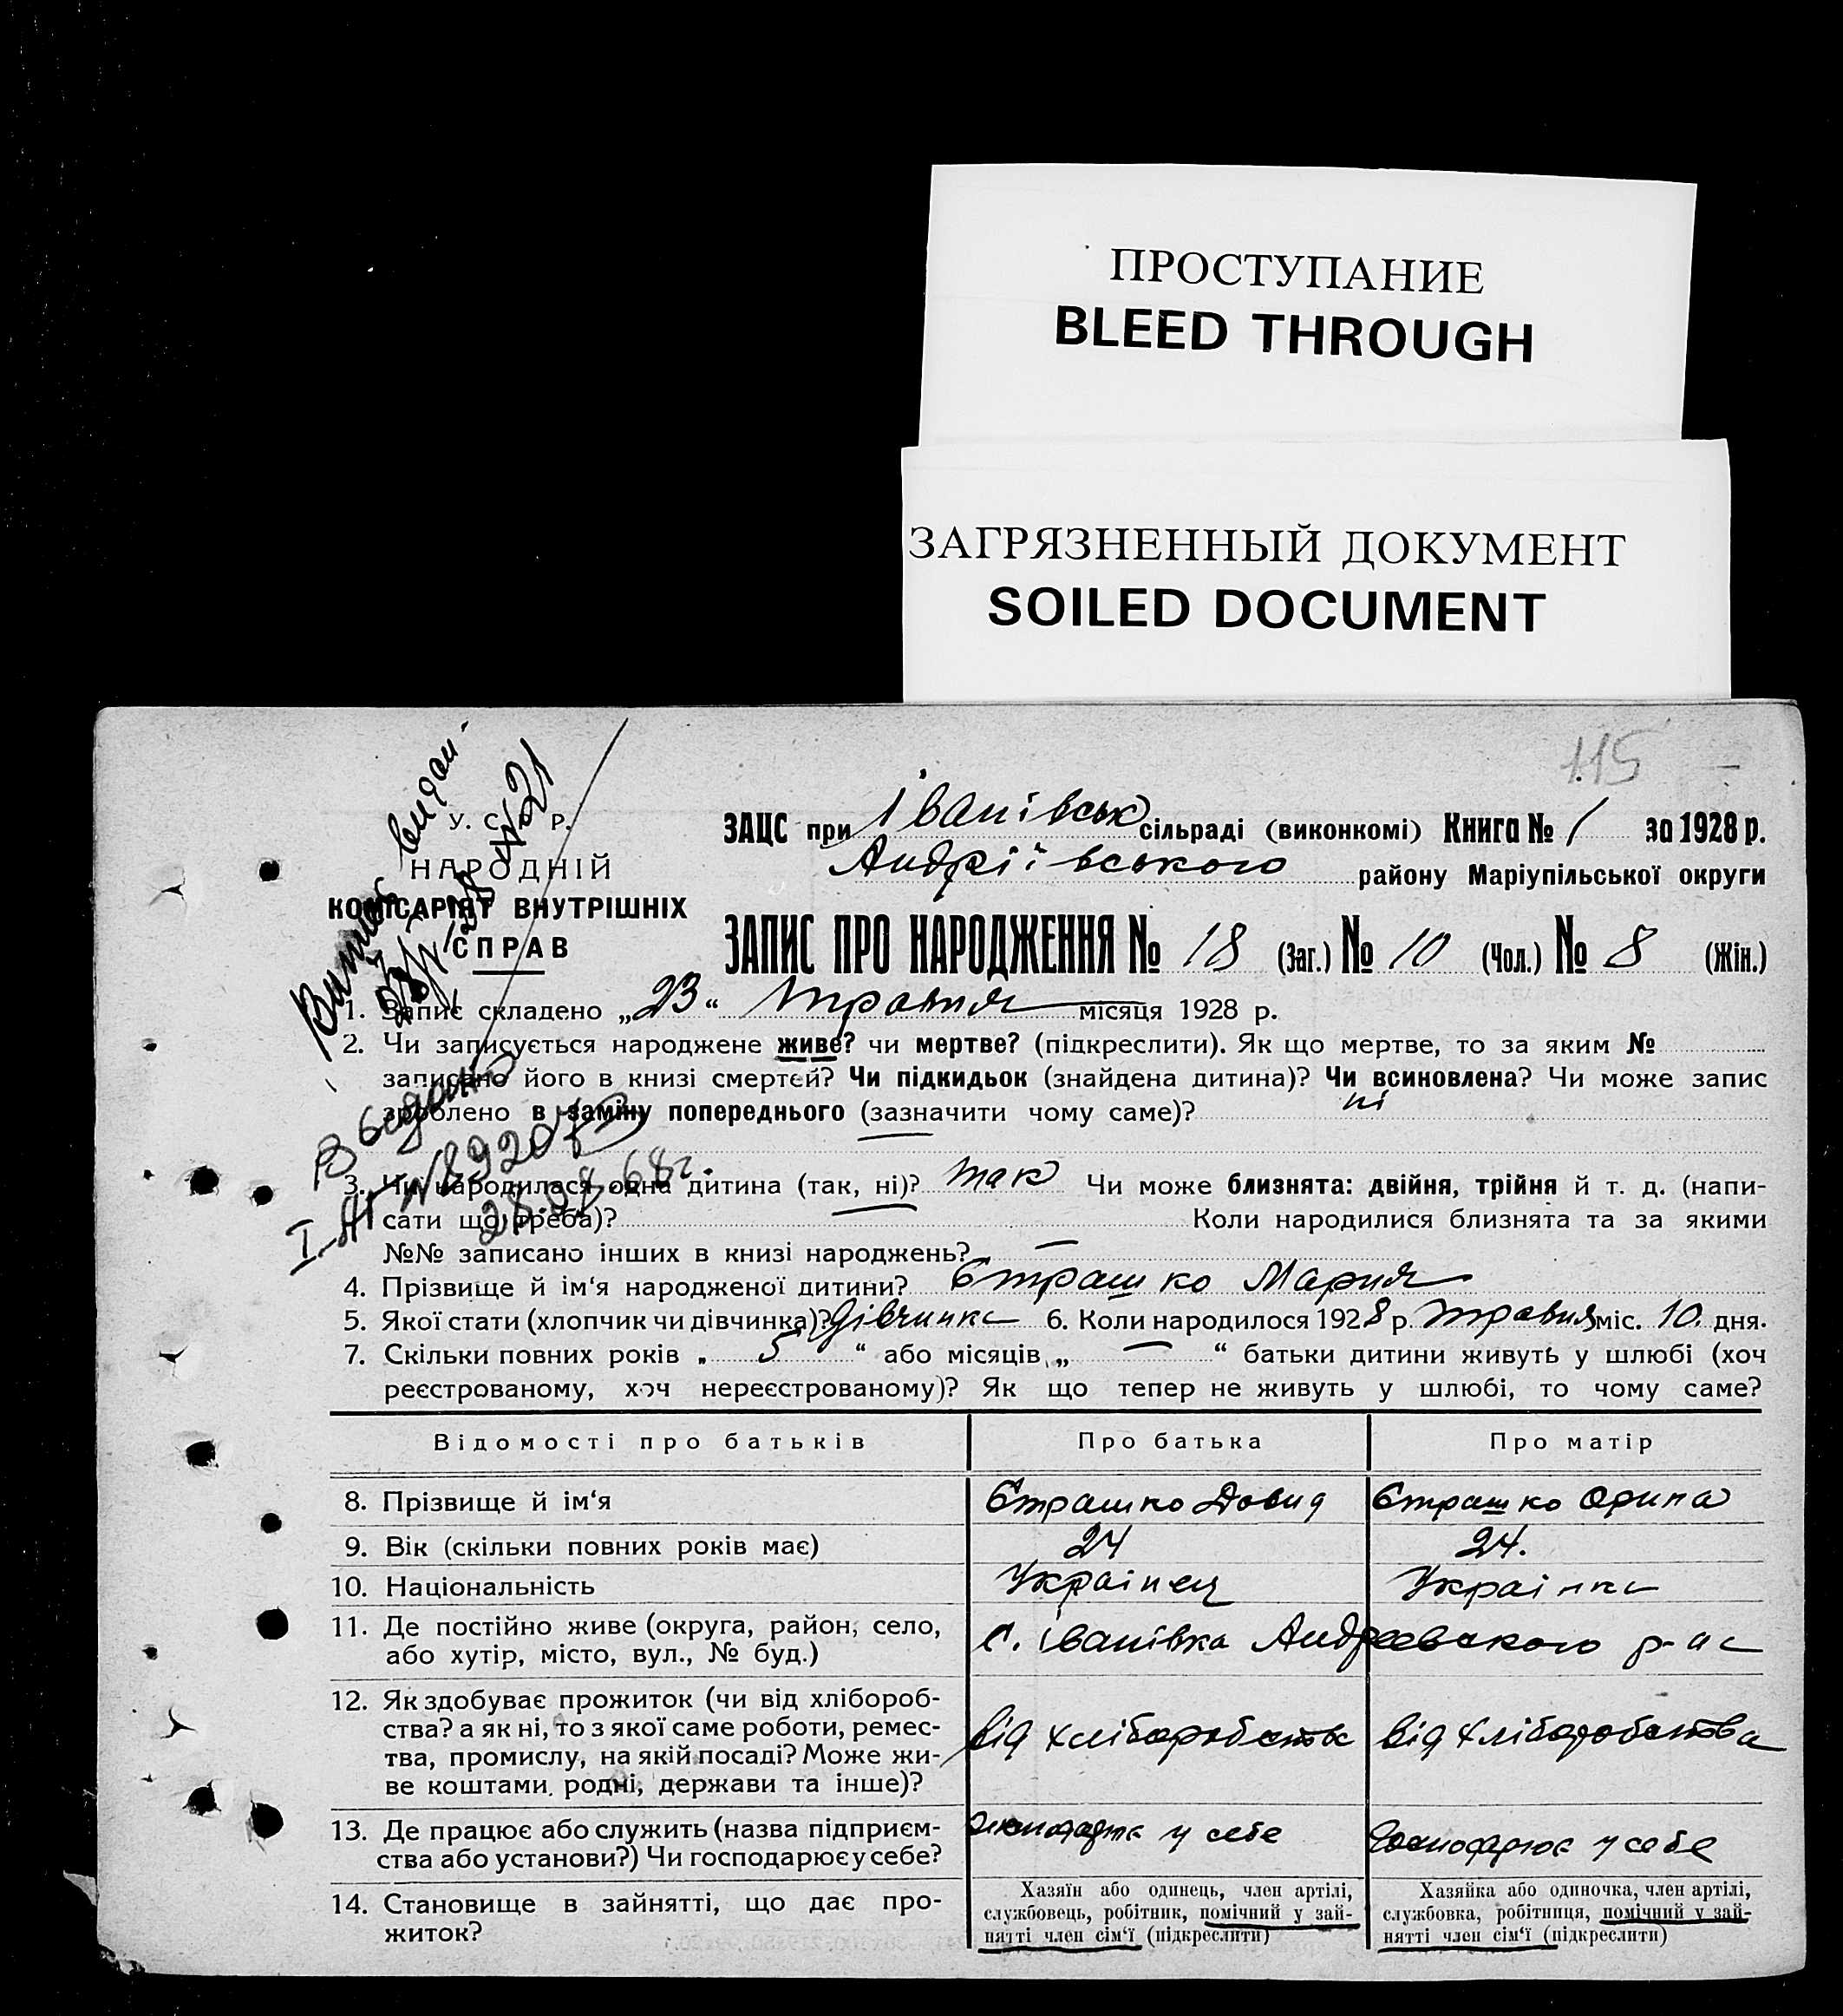 ПРОСТУПАНИЕ
BLEED THROUGH
ЗАГРЯЗНЕННЫЙ ДОКУМЕНТ
SOILED DOCUMENT
115
У. С. Р. Р.
НАРОДНІЙ
КОМІСАРІЯТ ВНУТРІШНІХ
СПРАВ
ЗАЦС при Іванівськ сільраді (виконкомі) Книга № 1 за 1928 р.
Андріївського району Маріупільської округи
ЗАПИС ПРО НАРОДЖЕННЯ № 18 (Заг.) № 10 (Чол.) № 8 (Жін.)
1. Запис складено „23“ травня місяця 1928 р.
2. Чи записується народжене живе? чи мертве? (підкреслити). Як що мертве, то за яким №
записано його в книзі смертей? Чи підкидьок (знайдена дитина)? Чи всиновлена? Чи може запис
зроблено в заміну попереднього (зазначити чому саме)? ні
3. Чи народилася одна дитина (так, ні)? так Чи може близнята: двійня, трійня й т. д. (напи-
сати що треба)? Коли народилися близнята та за якими
№№ записано інших в книзі народжень? —
4. Прізвище й ім‘я народженої дитини? Єтрашко Мария
5. Якої стати (хлопчик чи дівчинка)? дівчинка 6. Коли народилося 1928 р. травня міс. 10. дня.
7. Скільки повних років „ 5 “ або місяців „ — “ батьки дитини живуть у шлюбі (хоч
реєстрованому, хоч нереєстрованому)? Як що тепер не живуть у шлюбі, то чому саме?
Відомості про батьків Про батька Про матір
8. Прізвище й ім‘я Єтрашко Давид Єтрашко Орина
9. Вік (скільки повних років має) 24 24.
10. Національність Українец Українка
11. Де постійно живе (округа, район, село,
або хутір, місто, вул., № буд.)
с. Іванівка Андреевского р-на
12. Як здобуває прожиток (чи від хлібороб-
ства? а як ні, то з якої саме роботи, ремес-
тва, промислу, на якій посаді? Може жи-
ве коштами родні, держави та інше)?
від хліборобства від хліборобства
13. Де працює або служить (назва підприєм-
ства або установи?) Чи господарює у себе?
господарює у себе господарює у себе
14. Становище в зайнятті, що дає про-
житок?
Хазяїн або одинець, член артілі,
службовець, робітник, помічний у зай-
нятті член сім‘ї (підкреслити)
Хазяйка або одиночка, член артілі,
службовка, робітниця, помічний у зай-
нятті член сім‘ї (підкреслити)